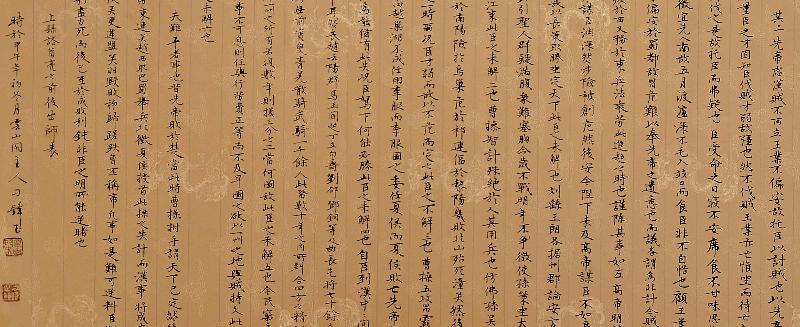 其二先帝慮漢賊不兩立王業不偏安故托臣以討賊也以先
量臣之才固知臣伐賊才弱敵強也然不伐賊王業亦亡惟坐而待亡
伐之是故托臣而弗疑也臣受命之日寢不安席食不甘味思
徵宜先入南故五月渡瀘深入不毛并日而食臣非不自惜也顧王業
偏安於蜀都故冒危難以奉先帝之遺意也而議者謂為非計今賊
於西又務於東兵法乘勞此進趨之時也謹陳其事如左高帝明
謀臣淵深然涉險被創危然後安今陛下未及高帝謀臣不如
以長策取勝坐定天下此臣之未解一也劉繇王朗各據州郡論安
引聖人群疑滿腹眾難塞胸今歲不戰明年不征使孫策坐大
江東此臣之未解二也曹操智計殊絕於人其用兵也仿佛孫
於南陽險於烏巢危於祁連偪於黎陽幾敗北山殆死潼關然後
之時而況臣才弱而欲以不危而定之此臣之不解三也曹操五攻昌霸
越巢湖不成任用李服而李服圖之委任夏侯而夏侯敗亡先帝
為能猶有此失況臣駑下何能必勝此臣之未解四也自臣到漢中間
耳然喪趙雲陽群馬玉閻芝丁立白壽劉郃鄧銅等及曲長屯將七十餘人
無前賨叟青羌散騎武騎一千餘人此皆數十年之內所糾合四方之精
一州之所有若復數年則損三分之二當何圖敵此臣之未解五也今民窮
事不可息則住與行勞費正等而不及早圖之欲以一州之地與賊持久此
之未解六也
夫難平者事也昔先帝敗於楚當此時曹操拊手謂天下已定然後
東連吳越西取巴蜀舉兵北徵夏侯授首此操之失計而漢事將成
吳更違盟關羽毀敗秭歸蹉跌曹丕稱帝凡事如是難可逆料臣
躬盡力死而後已至於成敗利鈍非臣之明所能逆睹也
上錄諸葛亮之前後出師表
時於甲午年初冬月雲山閣主人刁